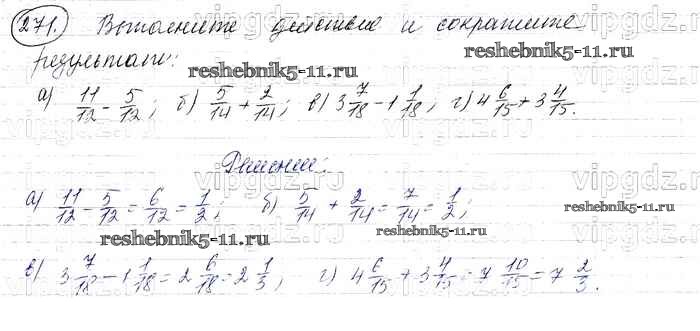 271. Выполните действие и сократите
результат:
reshebnik5-11.ru
а) 11/12 - 5/12; б) 5/14 + 2/14; в) 3 7/18 - 1 1/18; г) 4 6/15 + 3 4/15.
Решение:
а) 11/12 - 5/12 = 6/12 = 1/2; б) 5/14 + 2/14 = 7/14 = 1/2;
reshebnik5-11.ru
reshebnik5-11.ru
в) 3 7/18 - 1 1/18 = 2 6/18 = 2 1/3; г) 4 6/15 + 3 4/15 = 7 10/15 = 7 2/3.
vipgdz.ru